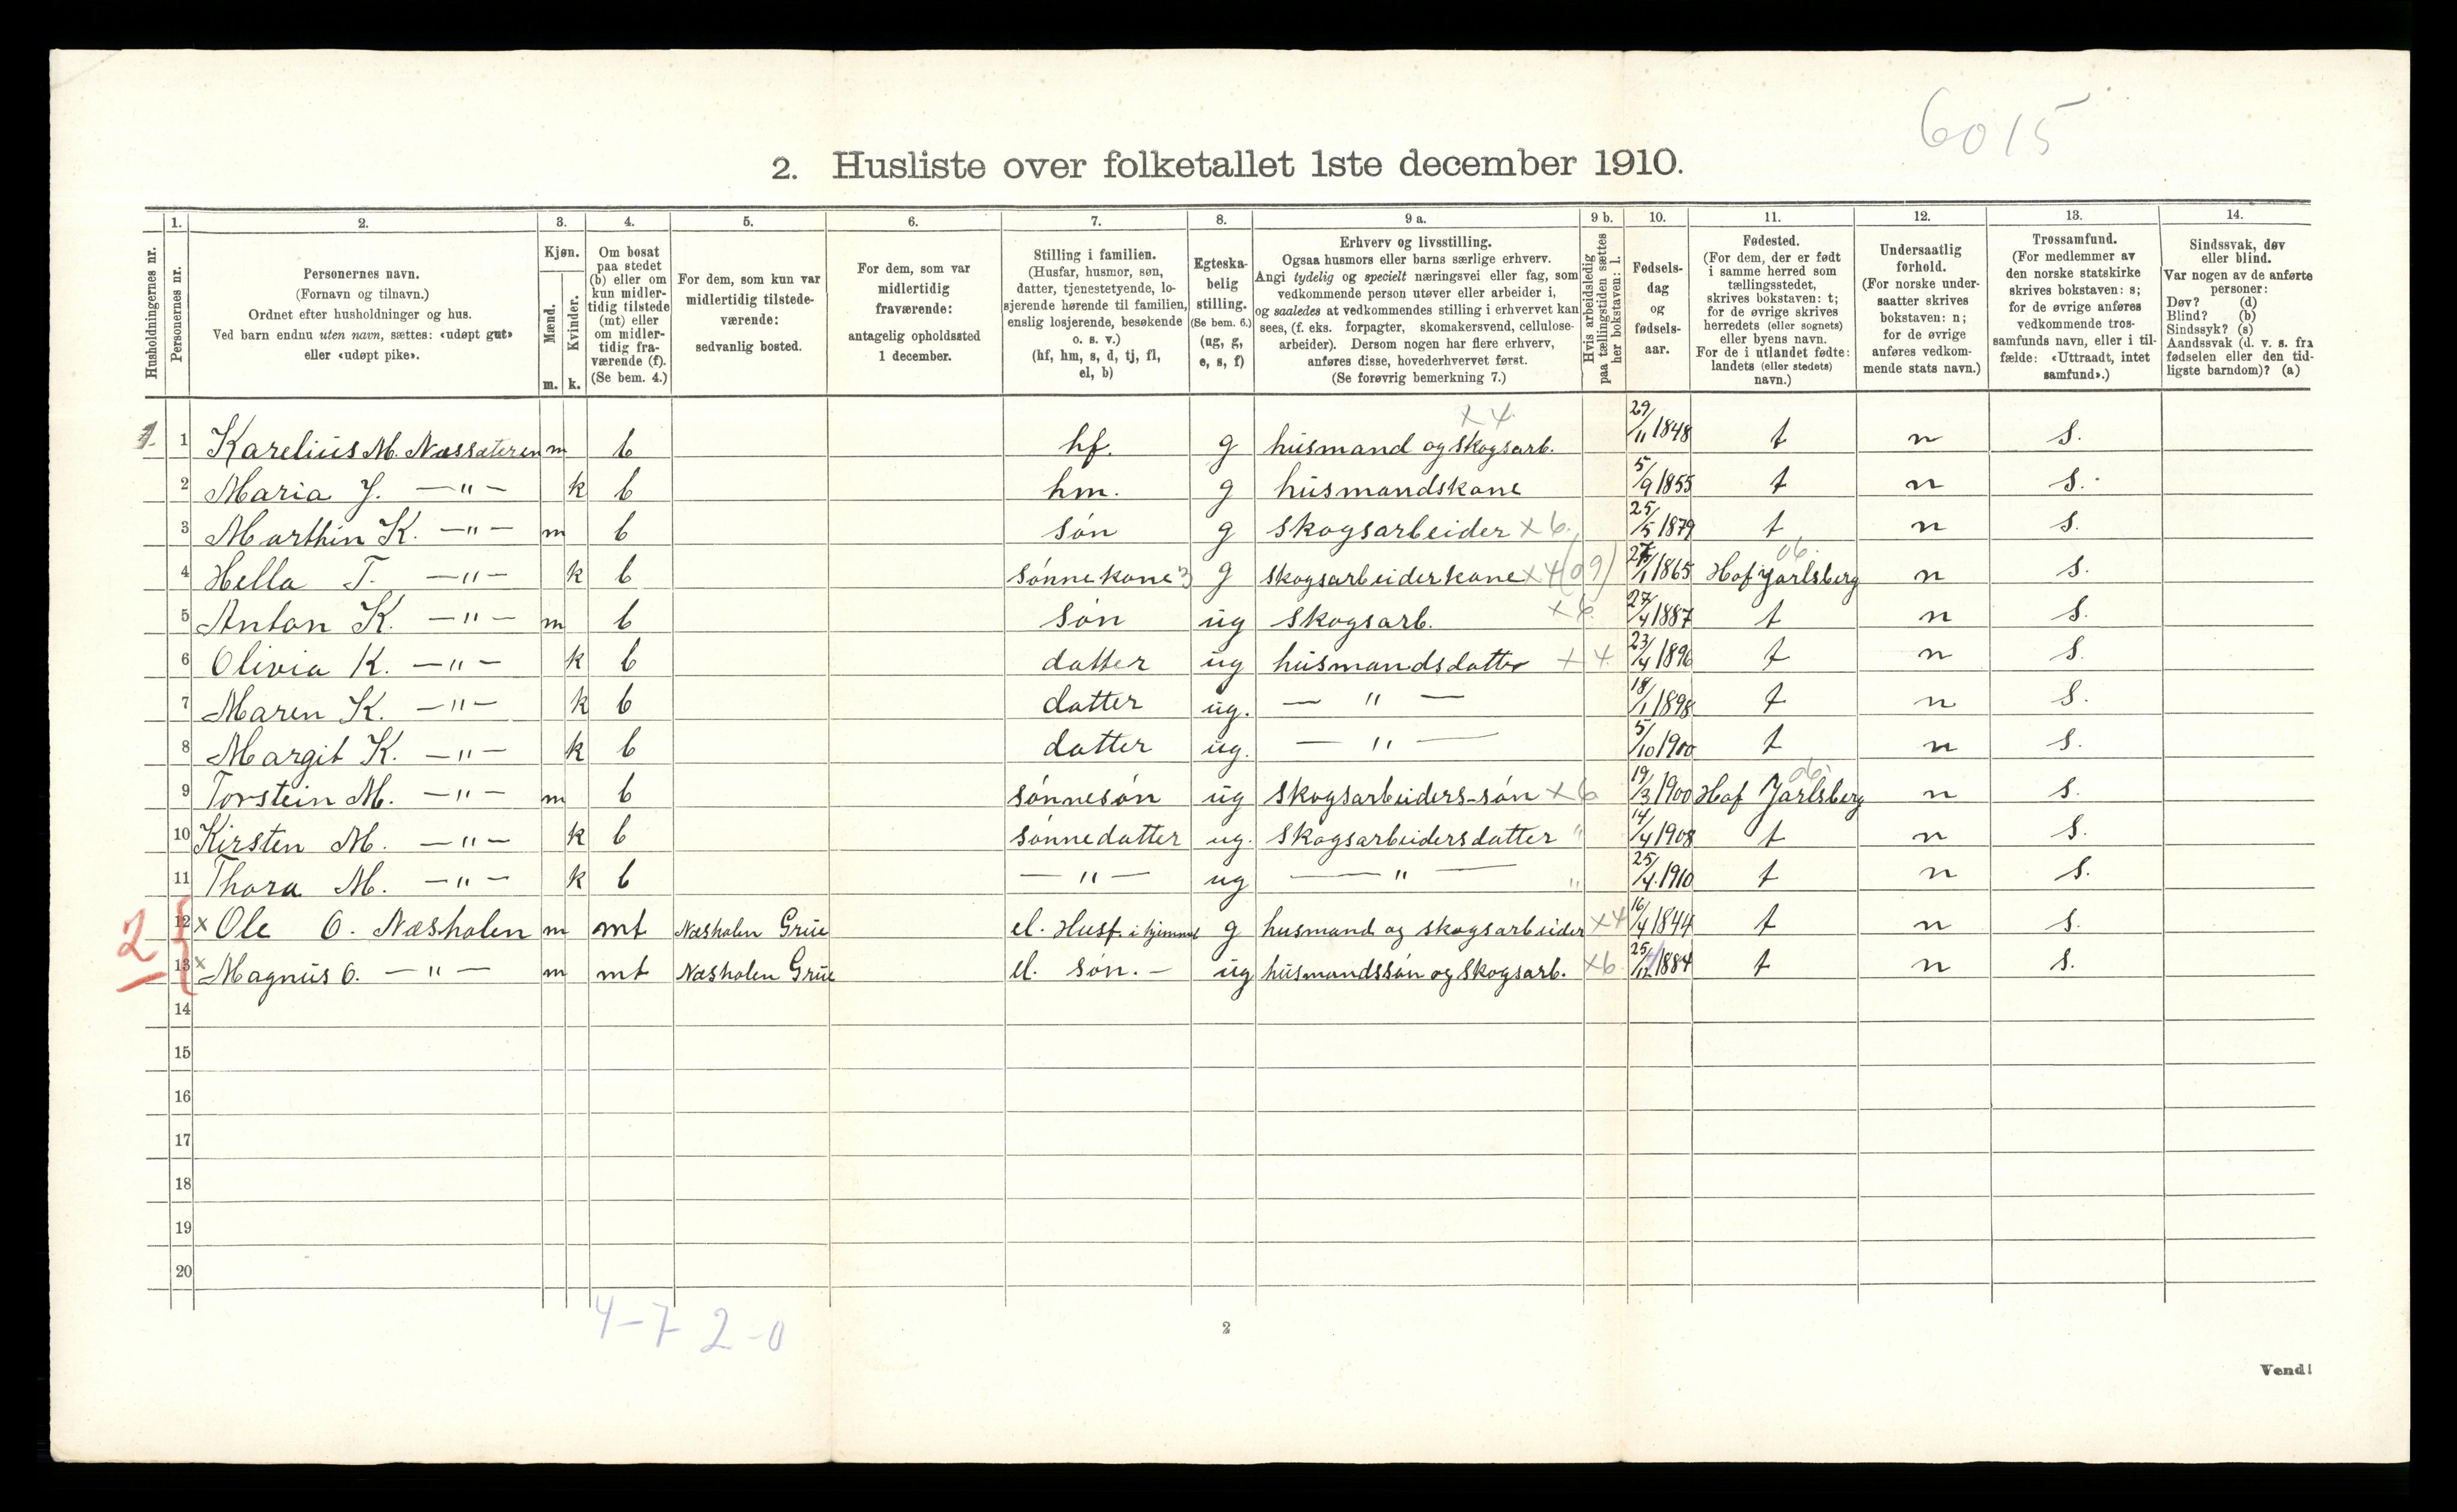 6015
2. Husliste over folketallet 1ste december 1910.
Husholdningernes nr.
1.
Personernes nr.
2.
Personernes navn.
(Fornavn og tilnavn.)
Ordnet efter husholdninger og hus.
Ved barn endnu uten navn, sættes: «udøpt gut»
eller «udøpt pike».
3.
Kjøn.
Mænd.
Kvinder.
m. k.
4.
Om bosat
paa stedet
(b) eller om
kun midler-
tidig tilstede
(mt) eller
om midler-
tidig fra-
værende (f).
(Se bem. 4.)
5.
For dem, som kun var
midlertidig tilstede-
værende:
sedvanlig bosted.
6.
For dem, som var
midlertidig
fraværende:
antagelig opholdssted
1 december.
7.
Stilling i familien.
(Husfar, husmor, søn,
datter, tjenestetyende, lo-
sjerende hørende til familien,
enslig losjerende, besøkende
o. s. v.)
(hf, hm, s, d, tj, fl,
el, b)
8.
Egteska-
belig
stilling.
(Se bem. 6.)
(ug, g,
e, s, f)
9 a.
Erhverv og livsstilling.
Ogsaa husmors eller barns særlige erhverv.
Angi tydelig og specielt næringsvei eller fag, som
vedkommende person utøver eller arbeider i,
og saaledes at vedkommendes stilling i erhvervet kan
sees, (f. eks. forpagter, skomakersvend, cellulose-
arbeider). Dersom nogen har flere erhverv,
anføres disse, hovederhvervet først.
(Se forøvrig bemerkning 7.)
9 b.
Hvis arbeidsledig
paa tællingstiden sættes
her bokstaven: l.
10.
Fødsels-
dag
og
fødsels-
aar.
11.
Fødested.
(For dem, der er født
i samme herred som
tællingsstedet,
skrives bokstaven: t;
for de øvrige skrives
herredets (eller sognets)
eller byens navn.
For de i utlandet fødte:
landets (eller stedets)
navn.)
12.
Undersaatlig
forhold.
(For norske under-
saatter skrives
bokstaven: n;
for de øvrige
anføres vedkom-
mende stats navn.)
13.
Trossamfund.
(For medlemmer av
den norske statskirke
skrives bokstaven: s;
for de øvrige anføres
vedkommende tros-
samfunds navn, eller i til-
fælde: «Uttraadt, intet
samfund».)
14.
Sindssvak, døv
eller blind.
Var nogen av de anførte
personer:
Døv? (d)
Blind? (b)
Sindssyk? (s)
Aandssvak (d. v. s. fra
fødselen eller den tid-
ligste barndom)? (a)
1. 1 Karelius M. Næssæteren m b hf. g husmand og skogsarb. x 4 29/11 1848 t n s.
2 Maria J. —"— k b hm. g husmandskone 5/9 1855 t n s.
3 Marthin K. —"— m b søn g skogsarbeider x 6. 25/5 1879 t n s.
4 Hella T. —"— k b sønnekone g skogsarbeiderkone x 4 (09) /1 1865 Hof Jarlsberg 06. n s.
5 Anton K. —"— m b søn ug skogsarb. x 6. 27/4 1887 t n s.
6 Olivia K. —"— k b datter ug husmandsdatter x 4. 23/4 1896 t n s.
7 Maren K. —"— k b datter ug. —"— 18/1 1898 t n s.
8 Margit K. —"— k b datter ug. —"— 5/10 1900 t n s.
9 Torstein M. —"— m b sønnesøn ug skogsarbeiders-søn x 6 19/3 1900 Hof Jarlsberg 06. n s.
10 Kirsten M. —"— k b sønnedatter ug. skogsarbeidersdatter " 14/4 1908 t n s.
11 Thora M. —"— k b —"— ug —"— " 25/4. 1910 t n s.
2 { 12 x Ole O. Næsholen m mt Næsholen Grue el. Husf. i hjemmet g husmand og skogsarbeider x 4 16/4 1844 t n s.
13 x Magnus O. —"— m mt Næsholen Grue el. søn. — ug husmandssøn og skogsarb. x 6. 25/12 1884 t n s.
14
15
16
17
18
19
20
4 - 7 2 - 0
2
Vend!